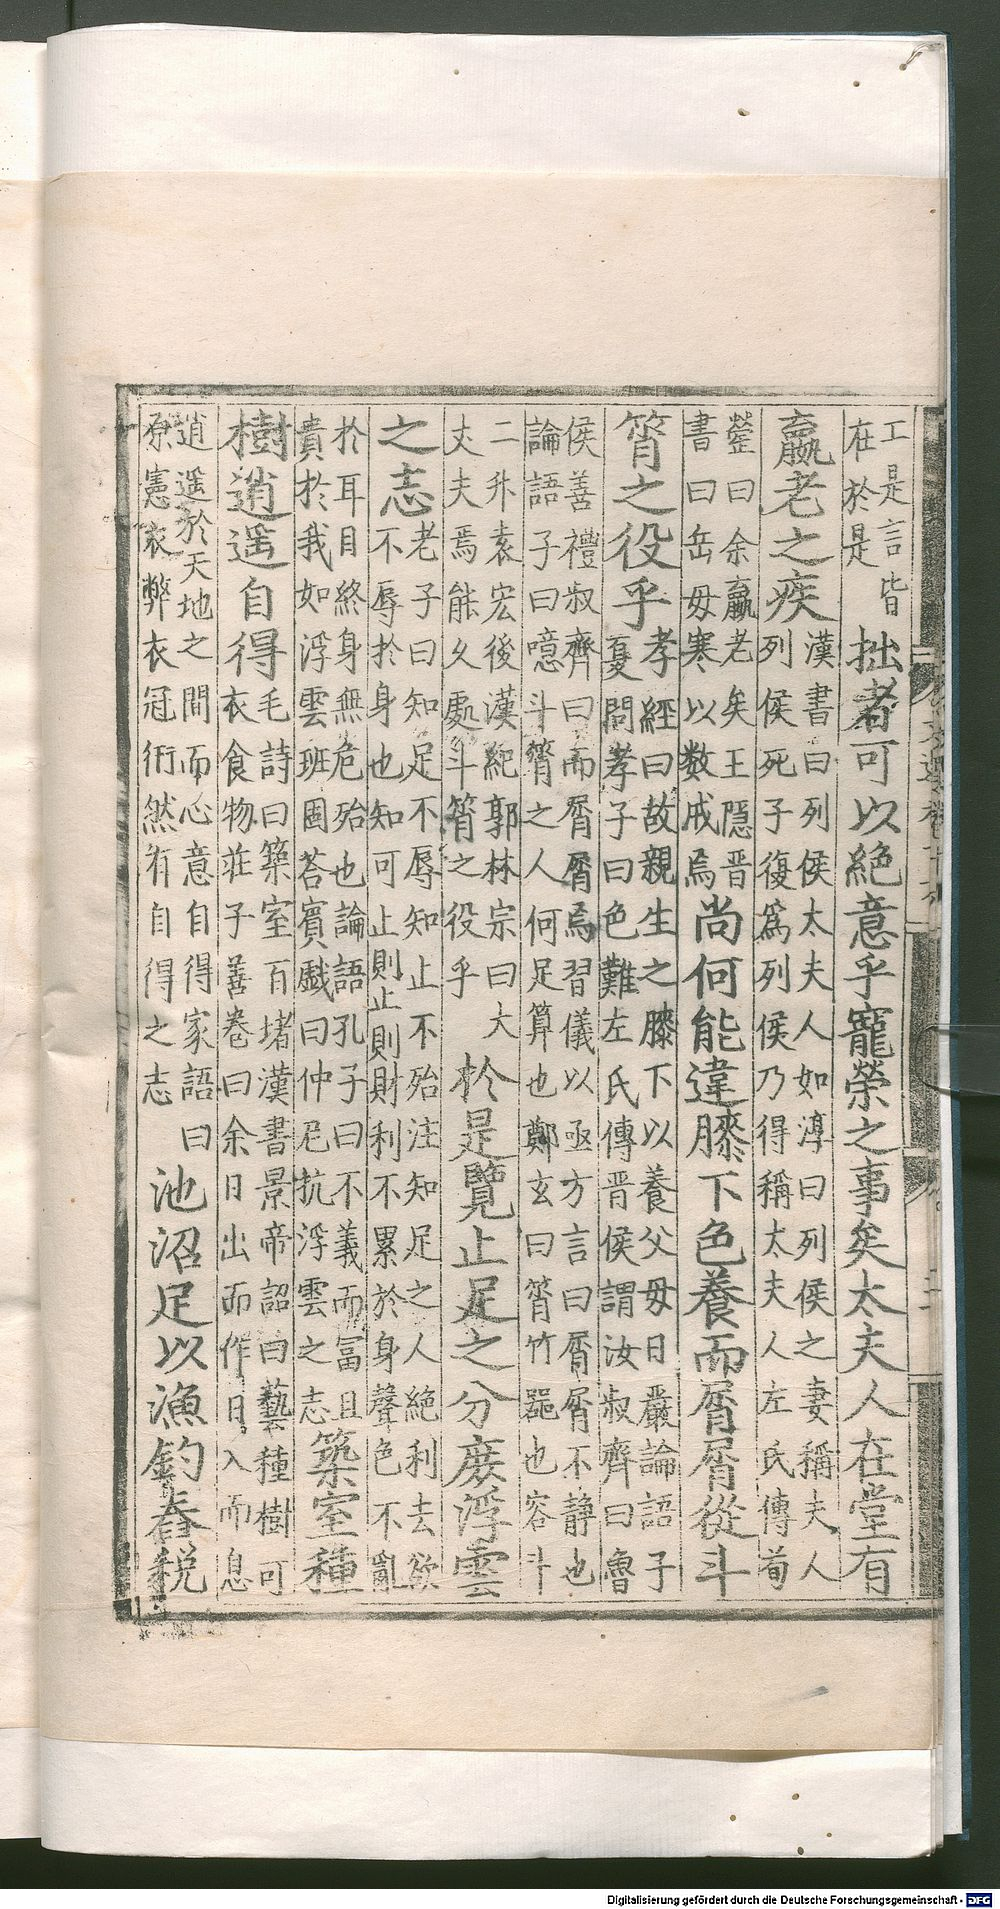 工是言皆
在於是
拙者可以絕意乎寵榮之事矣太夫人在堂有
羸老之疾
漢書曰列侯太夫人如淳曰列侯之妻稱夫人
列侯死子復爲列侯乃得稱太夫人左氏傳荀
罃曰余羸老矣王隱晉
書曰岳母寒以数戒焉
尚何能違膝下色養而屑屑從斗
筲之役乎
孝經曰故親生之膝下以養父母日嚴論語子
夏問孝子曰色難左氏傳晋侯謂汝叔齊曰魯
侯善禮叔齊曰而屑屑焉習儀以亟方言曰屑屑不静也
論語子曰噫斗筲之人何足算也鄭玄曰筲竹器也容斗
二升袁宏後漢紀郭林宗曰大
丈夫焉能久處斗筲之役乎
於是覽止足之分庶浮雲
之志
老子曰知足不辱知止不殆注知足之人絕利去欲
不辱於身也知可止則止則財利不累於身聲色不亂
於耳目終身無危殆也論語孔子曰不義而冨且
貴於我如浮雲班固荅賓戲曰仲尼抗浮雲之志
築室種
樹逍遥自得
毛詩曰築室百堵漢書景帝詔曰藝種樹可
衣食物莊子善卷曰余日出而作日入而息
逍遥於天地之間而心意自得家語曰
原憲衣弊衣冠衎然有自得之志
池沼足以漁釣舂稅
Digitalisierung gefördert durch die Deutsche Forschungsgemeinschaft - DFG